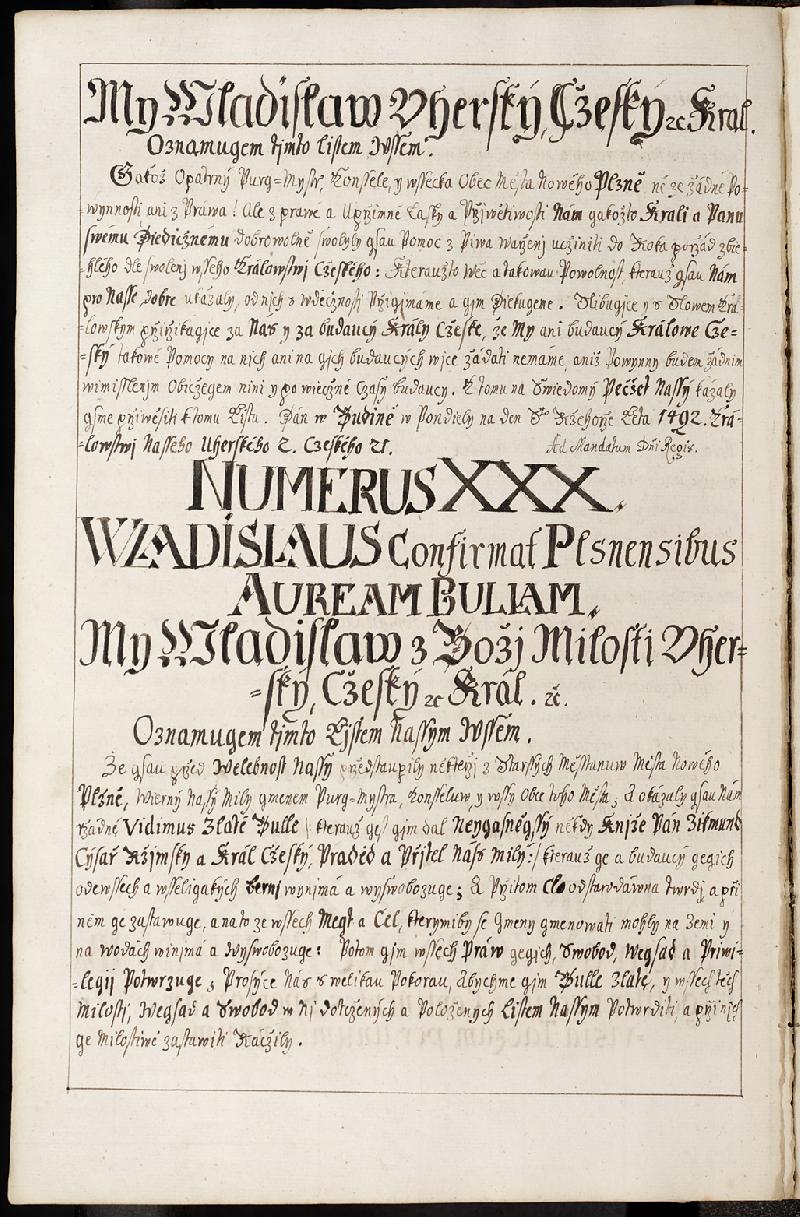 My Wladislaw Vherský, Čžeský ꝛc Král.
Oznamugem tjmto listem wssem.
Gakož Opatrný Purg=Mystr, Konssele, y wssecka Obec Města Nowého Plzně ne ze žádné Po=
wynnosti ani z Práwa! Ale z prawé a Vpřjmné Lásky a Přjwětiwosti Nám gakožto Krali a Panu
swému Diedičnému dobrowolně swolyly gsau Pomoc z Piwa Warženj vcžiniti do Roka pořád zbie=
hlého dle swolenj wsseho Králowstwj Čzeského: Kteraužto Wěc a takowau Powolnost, kterauž gsau Nám
pro Nasse dobre vkázaly, od nich s wděčžnosti Přigjmáme a gim Diekugeme. Slibugjce y s Slowem Krá=
lowským přiřjkagjce za Nas y za budaucý Krály Čzeské, že My ani budaucý Králowe Cze=
ský takowé Pomocy na nich ani na gich budaucých wjce žádati nemáme, aniž Powynny budem žádným
wimisslenjm Običžegem nini y po wiečžné Cžasy budaucy. K tomu na Swiedomj Pečžet Nassý kázaly
gsme přiwěsiti k tomu Listu. Dán w Budině w Pondiely na den Sº Ržehorže Léta 1492. Krá=
lowstwj Nasseho Uherského 2. Czeského 21. Ad Mandatum Dñi Regis.
NUMERUS XXX.
WŁADISLAUS Confirmat Plsnensibus
AUREAM BULLAM.
My Wladislaw z Božj Milosti Vher=
=ský, Čžeský ꝛc Král. ꝛč.
Oznamugem tjmto Lystem Nassym Wssem.
Že gsau před Welebnost Nassy předstaupily někteřj z Starssých Měsstanuw Města Nowého
Plzně, Wierný Nassý Milý gmenem Purg=Mystra, Konsseluw, y wssý Obce tého Města, a okázaly gsau Nám
Řádné Vidimus Zlaté Bulle /: kterauž gest gim dal Neygasněgssý někdy Knjže Pán Zikmund
Cýsař Ržjmský a Král Čžeský, Praděd a Přjtel Náss milý:/ kterauž ge a budaucý gegich
ode wssech a wsseligakých berni wynjmá a wyswobozuge; A Přitom Clo odstarodáwna twrdj a při
něm ge zastawuge, a nato ze wssech Megt a Cel, kterymiby se Gmeny gmenowati mohly na Zemi y
na wodách winjmá a Wyswobozuge: Potom gim wssěch Práw gegich, Swobod, Wegsad a Priwi=
=legij Potwrzuge; Prosýce Nás s welikau Pokorau, abychme gim Bulle Zlaté, y wssech těch
Milosti, Wegsad a Swobod w Nj dotčených a Položených Listem Nassym Potwrditi, a při nich
ge Milostiwě zastawiti Ráčžily.